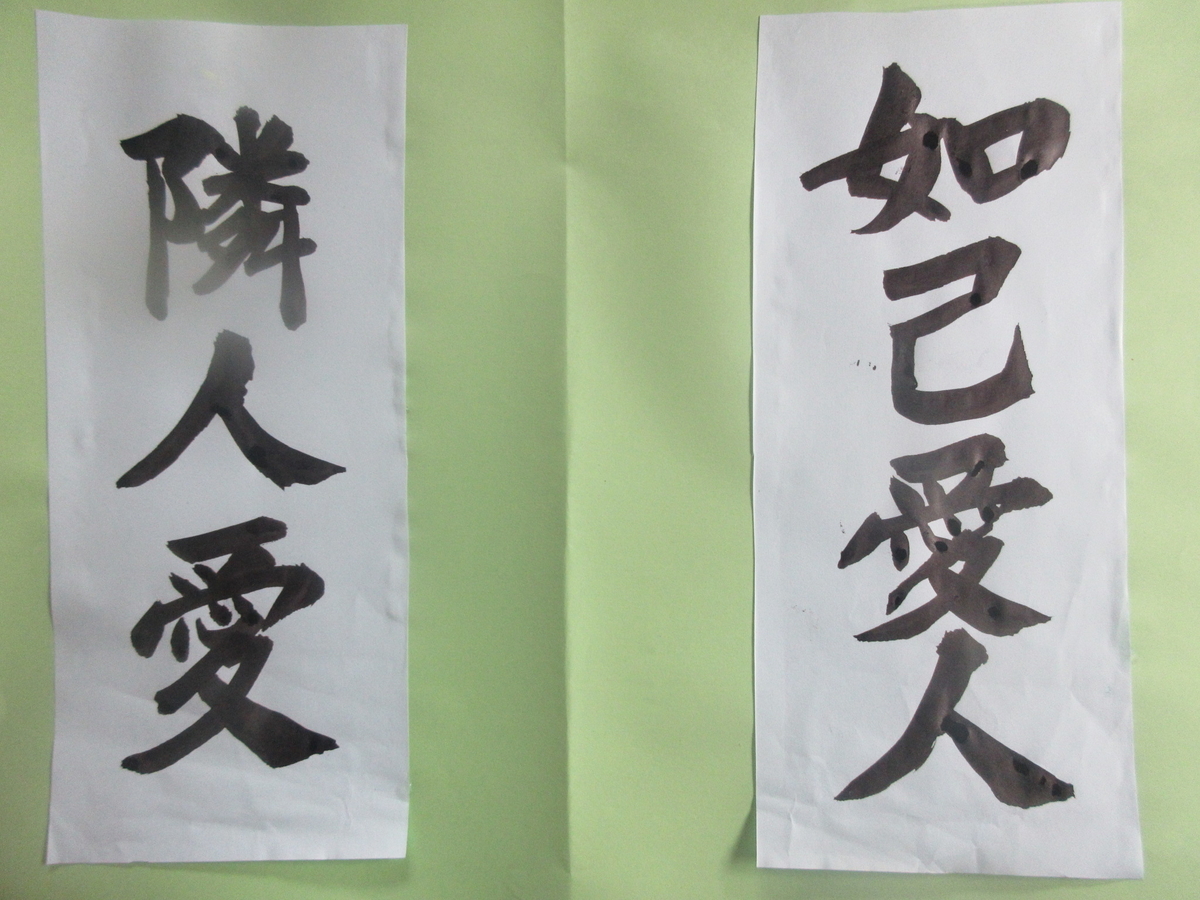 如己愛人
隣人愛